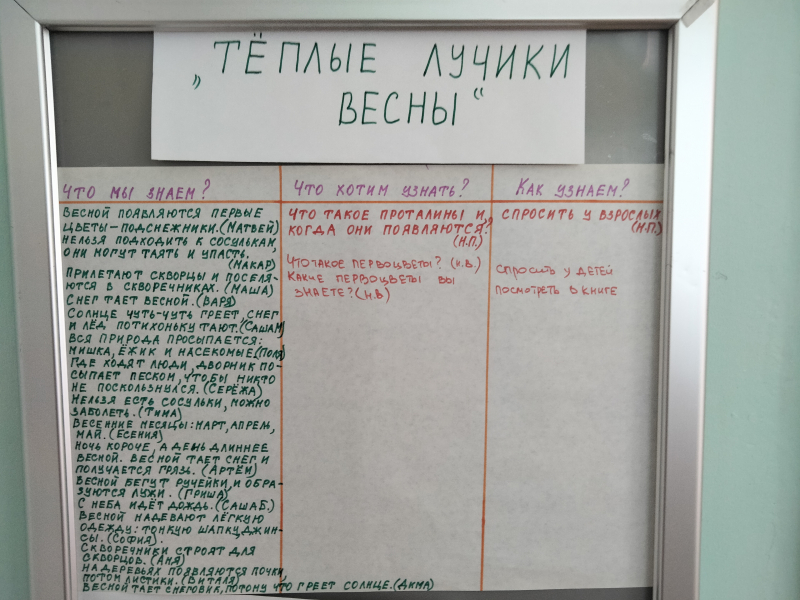 „ТЁПЛЫЕ ЛУЧИКИ
ВЕСНЫ“
ЧТО МЫ ЗНАЕМ?
ВЕСНОЙ ПОЯВЛЯЮТСЯ ПЕРВЫЕ
ЦВЕТЫ-ПОДСНЕЖНИКИ.(МАТВЕЙ)
НЕЛЬЗЯ ПОДХОДИТЬ К СОСУЛЬКАМ,
ОНИ МОГУТ ТАЯТЬ И УПАСТЬ.
(МАКАР)
ПРИЛЕТАЮТ СКВОРЦЫ И ПОСЕЛЯ-
ЮТСЯ В СКВОРЕЧНИКАХ. (МАША)
СНЕГ ТАЕТ ВЕСНОЙ. (ВАРЯ)
СОЛНЦЕ ЧУТЬ-ЧУТЬ ГРЕЕТ, СНЕГ
И ЛЁД ПОТИХОНЬКУ ТАЮТ.(САША М)
ВСЯ ПРИРОДА ПРОСЫПАЕТСЯ:
МИШКА, ЁЖИК И НАСЕКОМЫЕ.(ПОЛЯ)
ГДЕ ХОДЯТ ЛЮДИ, ДВОРНИК ПО-
СЫПАЕТ ПЕСКОМ, ЧТОБЫ НИКТО
НЕ ПОСКОЛЬЗНУЛСЯ. (СЕРЁЖА)
НЕЛЬЗЯ ЕСТЬ СОСУЛЬКИ, МОЖНО
ЗАБОЛЕТЬ. (ТИМА)
ВЕСЕННИЕ МЕСЯЦЫ: МАРТ, АПРЕЛЬ,
МАЙ. (ЕСЕНИЯ)
НОЧЬ КОРОЧЕ, А ДЕНЬ ДЛИННЕЕ
ВЕСНОЙ. ВЕСНОЙ ТАЕТ СНЕГ И
ПОЛУЧАЕТСЯ ГРЯЗЬ. (АРТЁМ)
ВЕСНОЙ БЕГУТ РУЧЕЙКИ, И ОБРА-
ЗУЮТСЯ ЛУЖИ. (ГРИША)
С НЕБА ИДЁТ ДОЖДЬ. (САША Б.)
ВЕСНОЙ НАДЕВАЮТ ЛЁГКУЮ
ОДЕЖДУ: ТОНКУЮ ШАПКУ, ДЖИН-
СЫ. (СОФИЯ).
СКВОРЕЧНИКИ СТРОЯТ ДЛЯ
СКВОРЦОВ. (АНЯ)
НА ДЕРЕВЬЯХ ПОЯВЛЯЮТСЯ ПОЧКИ,
ПОТОМ ЛИСТИКИ. (ВИТАЛЯ)
ВЕСНОЙ ТАЕТ СНЕГОВИК, ПОТОМУ ЧТО ГРЕЕТ СОЛНЦЕ.(ДИМА)
ЧТО ХОТИМ УЗНАТЬ?
ЧТО ТАКОЕ ПРОТАЛИНЫ И,
КОГДА ОНИ ПОЯВЛЯЮТСЯ?
(Н.П.)
ЧТО ТАКОЕ ПЕРВОЦВЕТЫ? (Н.В.)
КАКИЕ ПЕРВОЦВЕТЫ ВЫ
ЗНАЕТЕ? (Н.В)
КАК УЗНАЕМ?
СПРОСИТЬ У ВЗРОСЛЫХ
(Н.П.)
СПРОСИТЬ У ДЕТЕЙ
ПОСМОТРЕТЬ В КНИГЕ